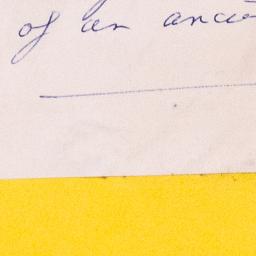 of an anci